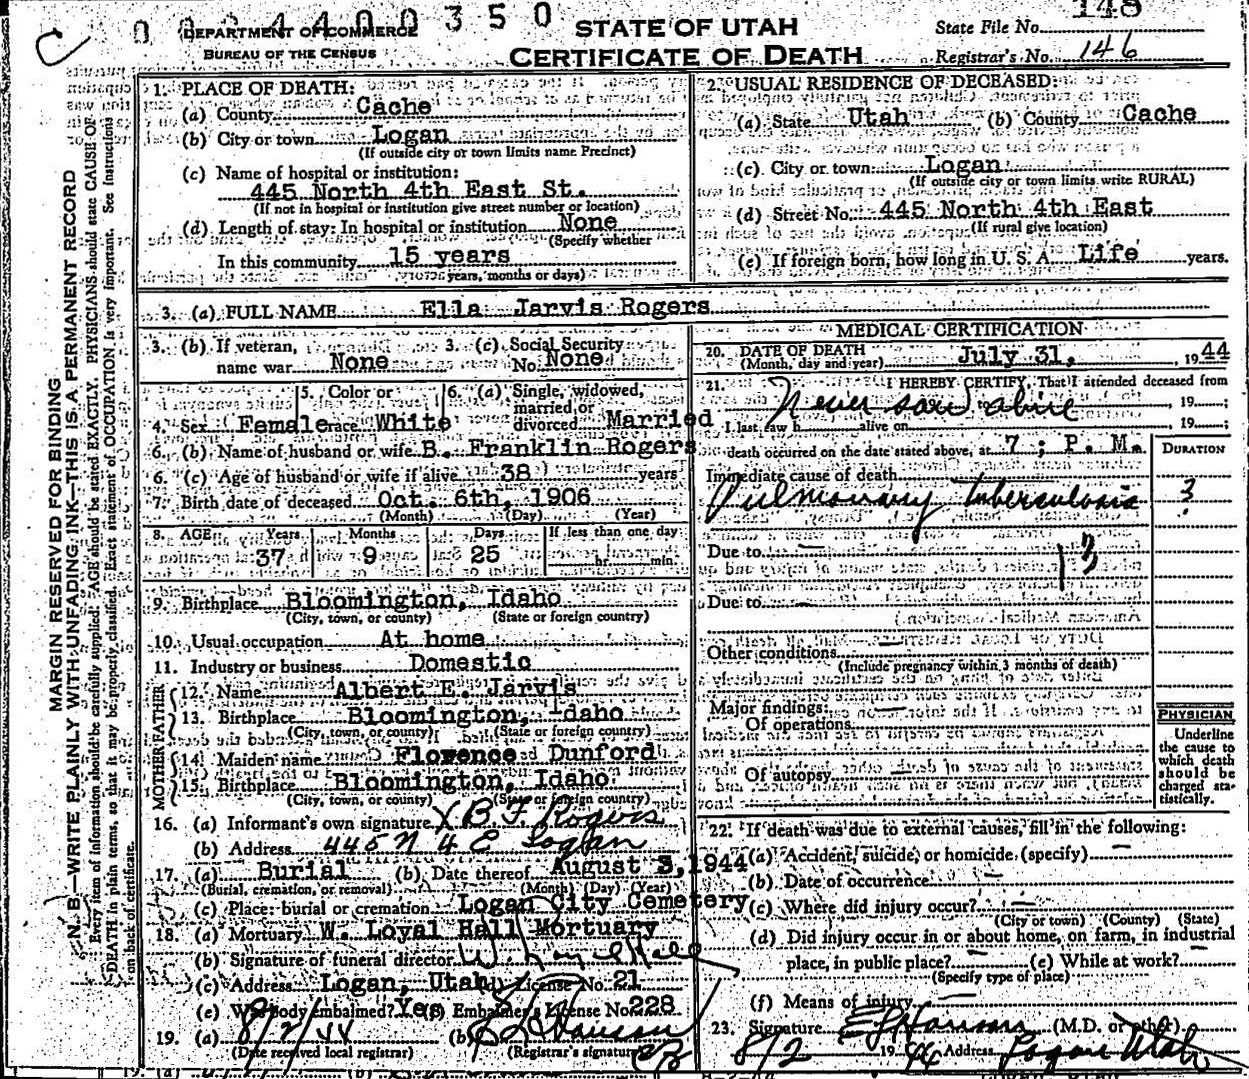 0 0 2 4 4 0 0 3 5 0
DEPARTMENT OF COMMERCE
BUREAU OF THE CENSUS
STATE OF UTAH
CERTIFICATE OF DEATH
State File No. 148
Registrar's No. 146
MARGIN RESERVED FOR BINDING
N. B.—WRITE PLAINLY WITH UNFADING INK—THIS IS A PERMANENT RECORD
Every item of information should be carefully supplied. AGE should be stated EXACTLY. PHYSICIANS should state CAUSE OF
DEATH in plain terms, so that it may be properly classified. Exact statement of OCCUPATION is very important. See instructions
on back of certificate.
1. PLACE OF DEATH:
(a) County Cache
(b) City or town Logan
(If outside city or town limits name Precinct)
(c) Name of hospital or institution:
445 North 4th East St.
(If not in hospital or institution give street number or location)
(d) Length of stay: In hospital or institution None
(Specify whether
In this community 15 years
years, months or days)
2. USUAL RESIDENCE OF DECEASED:
(a) State Utah (b) County Cache
(c) City or town Logan
(If outside city or town limits write RURAL)
(d) Street No. 445 North 4th East
(If rural give location)
(e) If foreign born, how long in U. S. A. Life years.
3. (a) FULL NAME Ella Jarvis Rogers
3. (b) If veteran, name war None
3. (c) Social Security No. None
4. Sex Female
5. Color or race White
6. (a) Single, widowed, married, or divorced Married
6. (b) Name of husband or wife B. Franklin Rogers
6. (c) Age of husband or wife if alive 38 years
7. Birth date of deceased Oct. 6th, 1906
(Month) (Day) (Year)
8. AGE Years Months Days If less than one day
37 9 25 hr. min.
9. Birthplace Bloomington, Idaho
(City, town, or county) (State or foreign country)
10. Usual occupation At home
11. Industry or business Domestic
FATHER
12. Name Albert E. Jarvis
13. Birthplace Bloomington, Idaho
(City, town, or county) (State or foreign country)
MOTHER
14. Maiden name Florence Dunford
15. Birthplace Bloomington, Idaho
(City, town, or county) (State or foreign country)
16. (a) Informant's own signature X B. F. Rogers
(b) Address 445 N 4 E Logan
17. (a) Burial (b) Date thereof August 3, 1944
(Burial, cremation, or removal) (Month) (Day) (Year)
(c) Place: burial or cremation Logan City Cemetery
18. (a) Mortuary W. Loyal Hall Mortuary
(b) Signature of funeral director W Loyal Hall
(c) Address Logan, Utah (d) License No. 21
(e) Was body embalmed? Yes (f) Embalmer's License No. 228
19. (a) 8/2/44 (b)
(Date received local registrar) (Registrar's signature)
MEDICAL CERTIFICATION
20. DATE OF DEATH July 31, 1944
(Month, day and year)
21. I HEREBY CERTIFY, That I attended deceased from
Never saw alive , 19 ;
I last saw h alive on , 19 ;
death occurred on the date stated above, at 7 ; P. M.
DURATION
Immediate cause of death
Pulmonary tuberculosis ?
Due to —
13
Due to —
Other conditions
(Include pregnancy within 3 months of death)
Major findings: —
Of operations
Of autopsy —
PHYSICIAN
Underline
the cause to
which death
should be
charged sta-
tistically.
22. If death was due to external causes, fill in the following:
(a) Accident, suicide, or homicide (specify) —
(b) Date of occurrence —
(c) Where did injury occur? —
(City or town) (County) (State)
(d) Did injury occur in or about home, on farm, in industrial
place, in public place? — (e) While at work?
(Specify type of place)
(f) Means of injury —
23. Signature (M.D. or other)
8/2 1944 Address Logan Utah